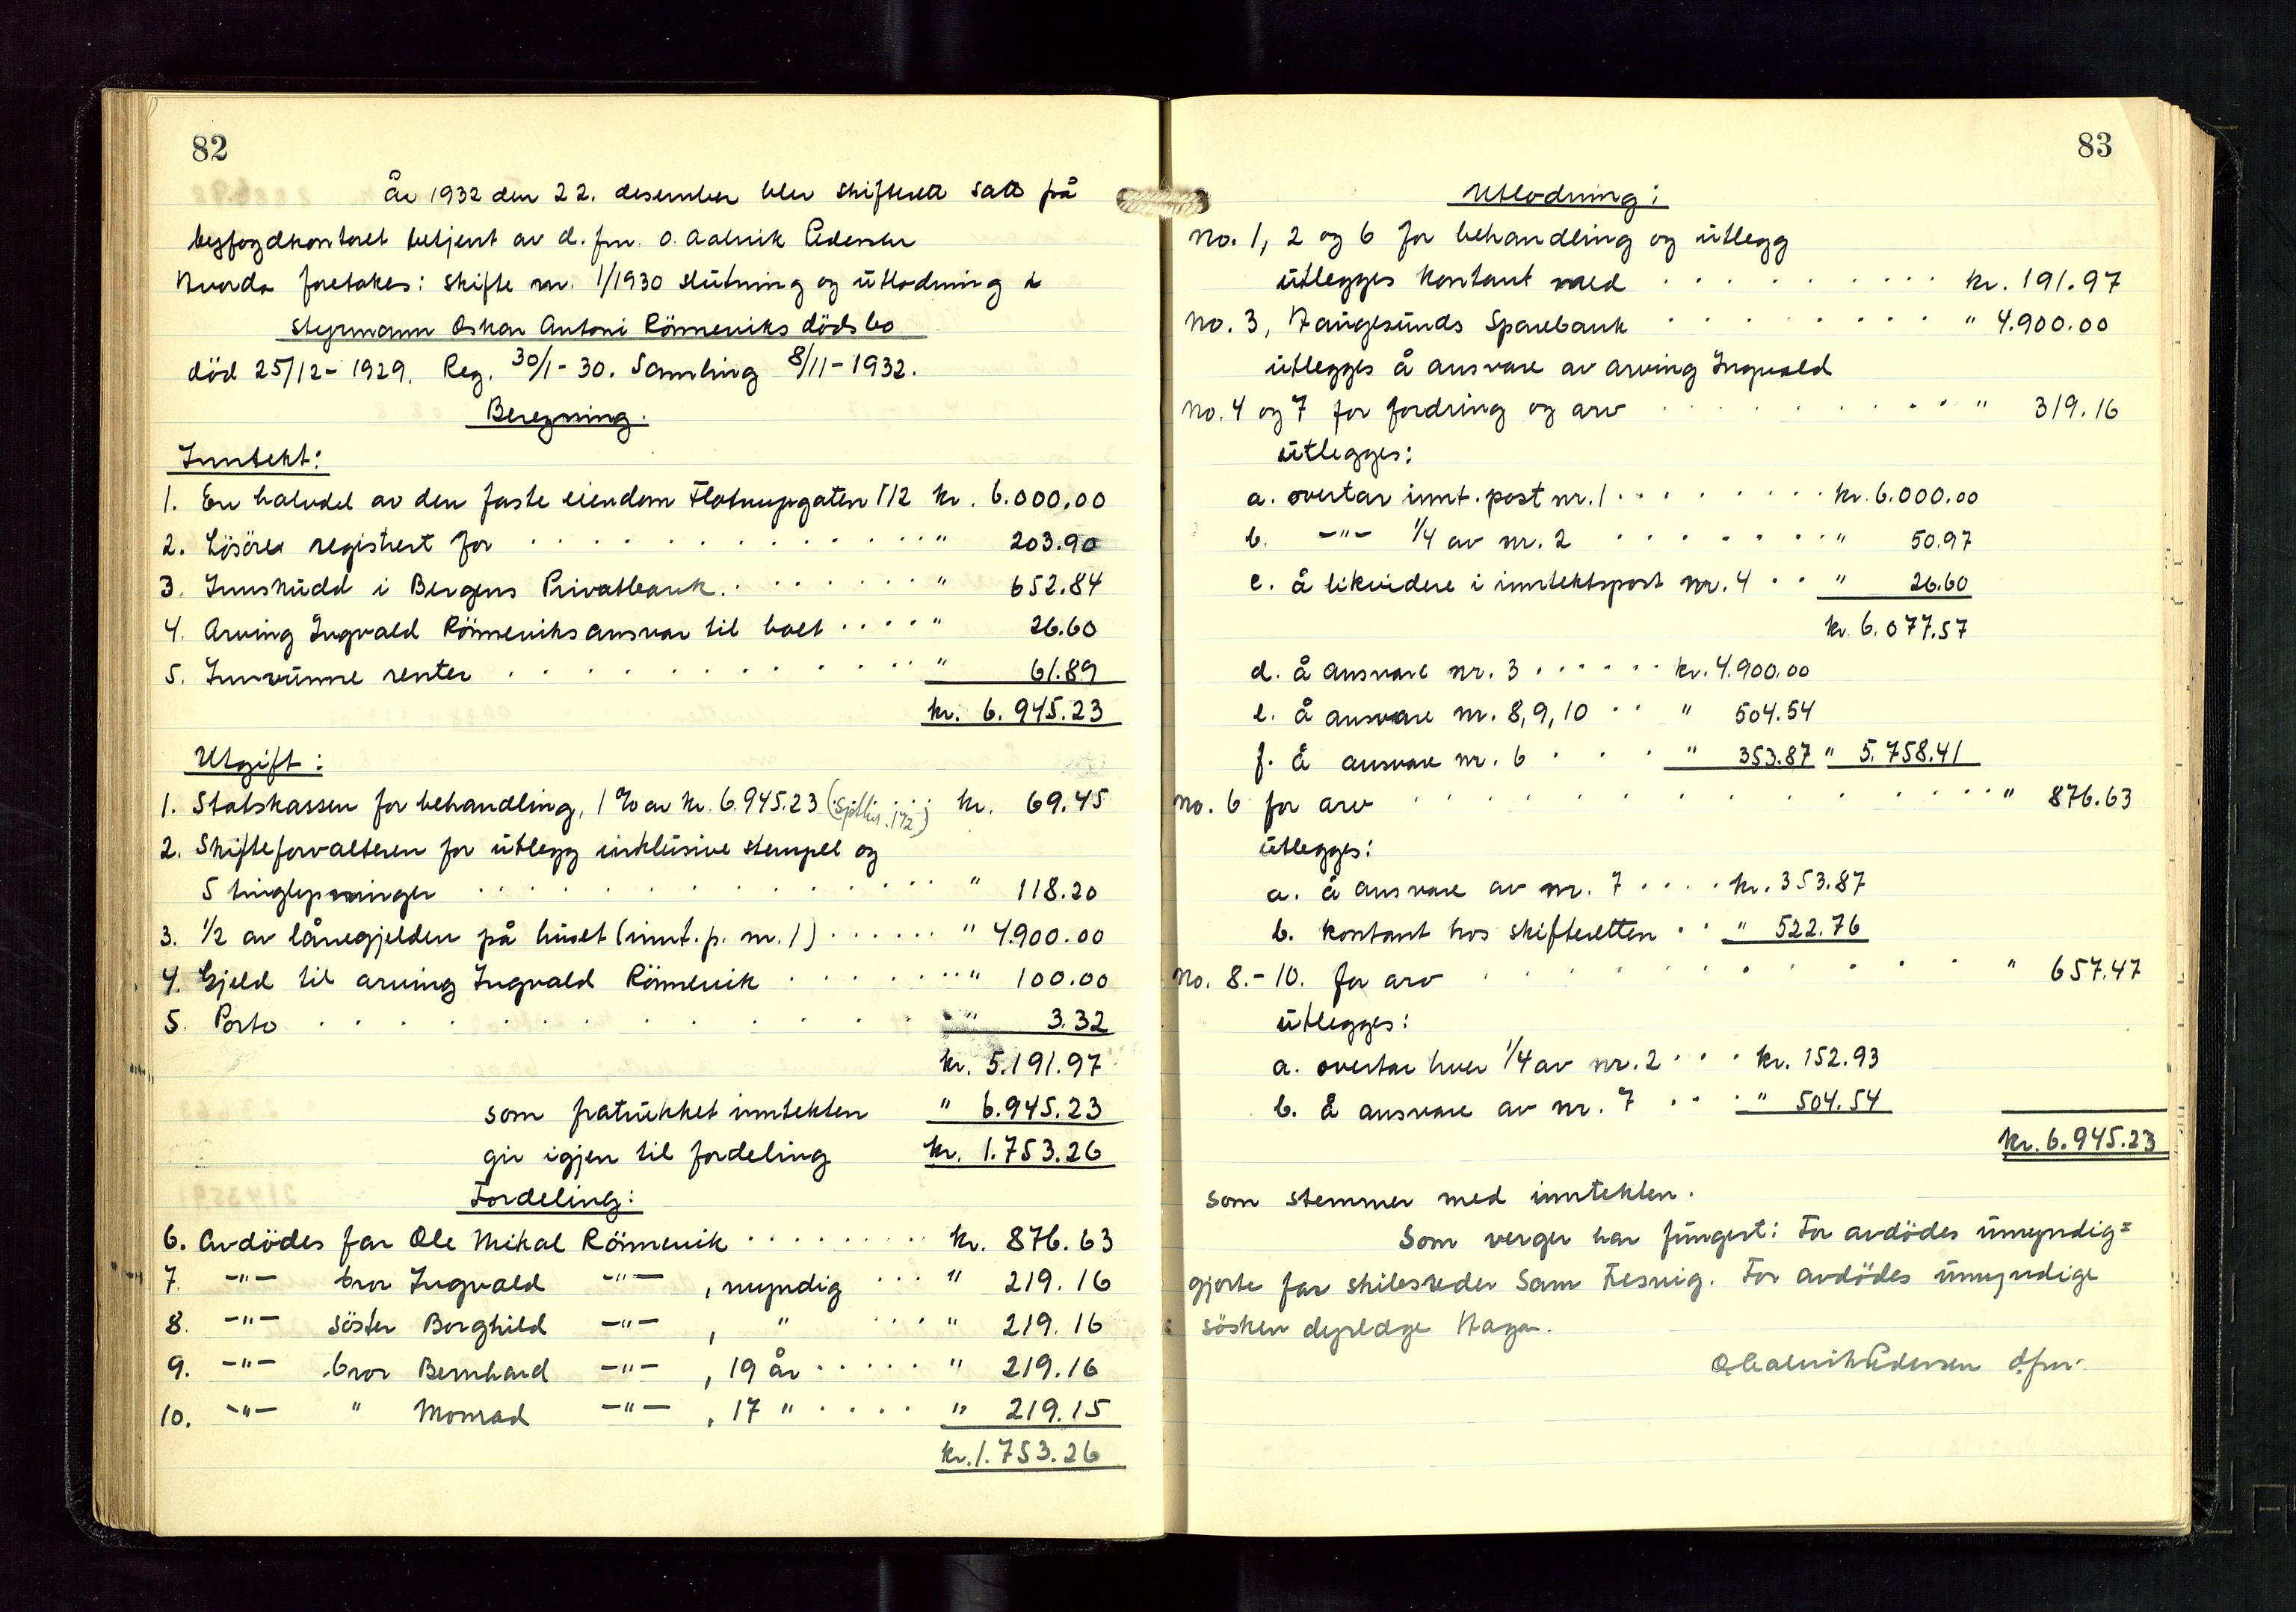 82
År 1932 den 22. desember blev skifterett satt på
byfogdkontoret betjent av d.fm. O. Aalvik Pedersen
Hvorda foretokes: Skifte nr. 1/1930 slutning og utlodning i
styrmann Oskar Antoni Rönneviks dödsbo
död 25/12 - 1929. Reg. 30/1 - 30. Samling 8/11 - 1932.
Beregning.
Inntekt:
1. En halvdel av den faste eiendom Flotmyrgaten 112 kr. 6.000.00
2. Lösöre registrert for . . . . . " 203.90
3. Innskudd i Bergens Privatbank . . . . . " 652.84
4. Arving Ingvald Rönneviks ansvar til boet . . . . " 26.60
5. Innvunne renter . . . . . " 61.89
kr. 6.945.23
Utgift:
1. Statskassen for behandling, 1 % av kr. 6.945.23 kr. 69.45
2. Skifteforvalteren for utlegg inklusive stempel og
5 tinglysninger . . . . . " 118.20
3. 1/2 av lånegjelden på huset (innt. p. nr. 1) . . . . . " 4.900.00
4. Gjeld til arving Ingvald Rönnevik . . . . . " 100.00
5. Porto . . . . . " 3.32
kr. 5.191.97
som fratrukket inntekten " 6.945.23
gir igjen til fordeling kr. 1.753.26
Fordeling:
6. Avdödes far Ole Mikal Rönnevik . . . . . kr. 876.63
7. -"- bror Ingvald -"- , myndig . . . " 219.16
8. -"- söster Borghild -"- , " . . . " 219.16
9. -"- bror Bernhard -"- , 19 år . . . . . " 219.16
10. -"- " Monrad -"- , 17 " . . . . " 219.15
kr. 1.753.26
83
Utlodning:
No. 1, 2 og 6 for behandling og utlegg
utlegges kontant med . . . . . kr. 191.97
No. 3, Haugesunds Sparebank . . . . . " 4.900.00
utlegges å ansvare av arving Ingvald
No. 4 og 7 for fordring og arv . . . . . " 319.16
utlegges:
a. overtar innt. post nr. 1 . . . . . kr. 6.000.00
b. -"- 1/4 av nr. 2 . . . . . " 50.97
c. å likvidere i inntektspost nr. 4 . . " 26.60
kr. 6.077.57
d. å ansvare nr. 3 . . . . . kr. 4.900.00
e. å ansvare nr. 8, 9, 10 . . " 504.54
f. å ansvare nr. 6 . . . " 353.87 " 5.758.41
No. 6 for arv . . . . . " 876.63
utlegges:
a. å ansvare av nr. 7 . . . . kr. 353.87
b. kontant hos skifteretten . . " 522.76
No. 8. - 10. for arv . . . . . " 657.47
utlegges:
a. overtar hver 1/4 av nr. 2 . . . kr. 152.93
b. å ansvare av nr. 7 . . . " 504.54
kr. 6.945.23
som stemmer med inntekten.
Som verger har fungert: For avdödes umyndig=
gjorte far skibsreder Sam Fesvig. For avdödes umyndige
sösken dyrlæge Haga.
O. Aalvik Pedersen d.fm.